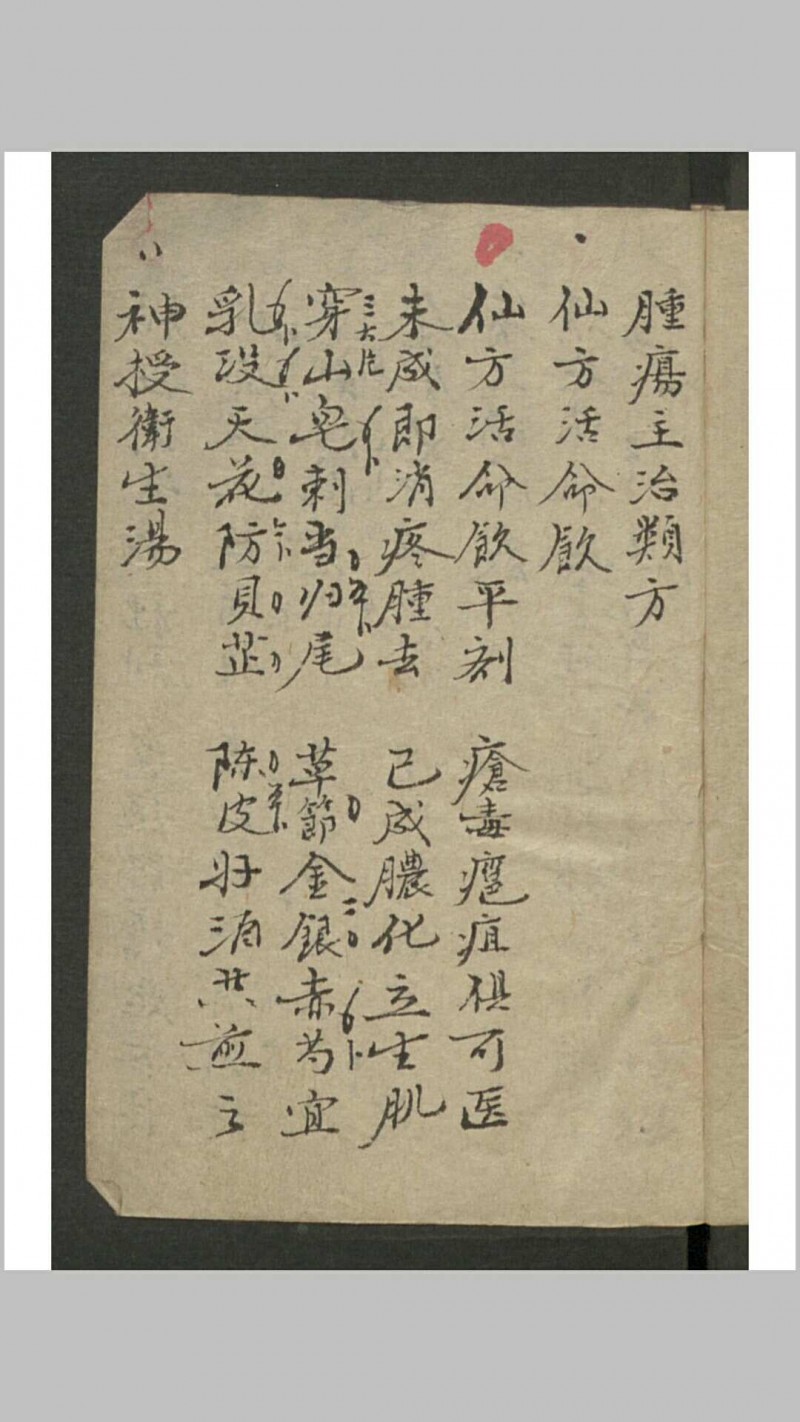 腫瘍主治類方
仙方活命飲
仙方活命飲平剤 瘡毒癰疽俱可医
未成即消疼腫去 已成膿化立生肌
穿山皂刺当归尾 草節金銀赤芍宜
乳没天花防貝芷 陈皮好酒共煎之
神授衛生湯